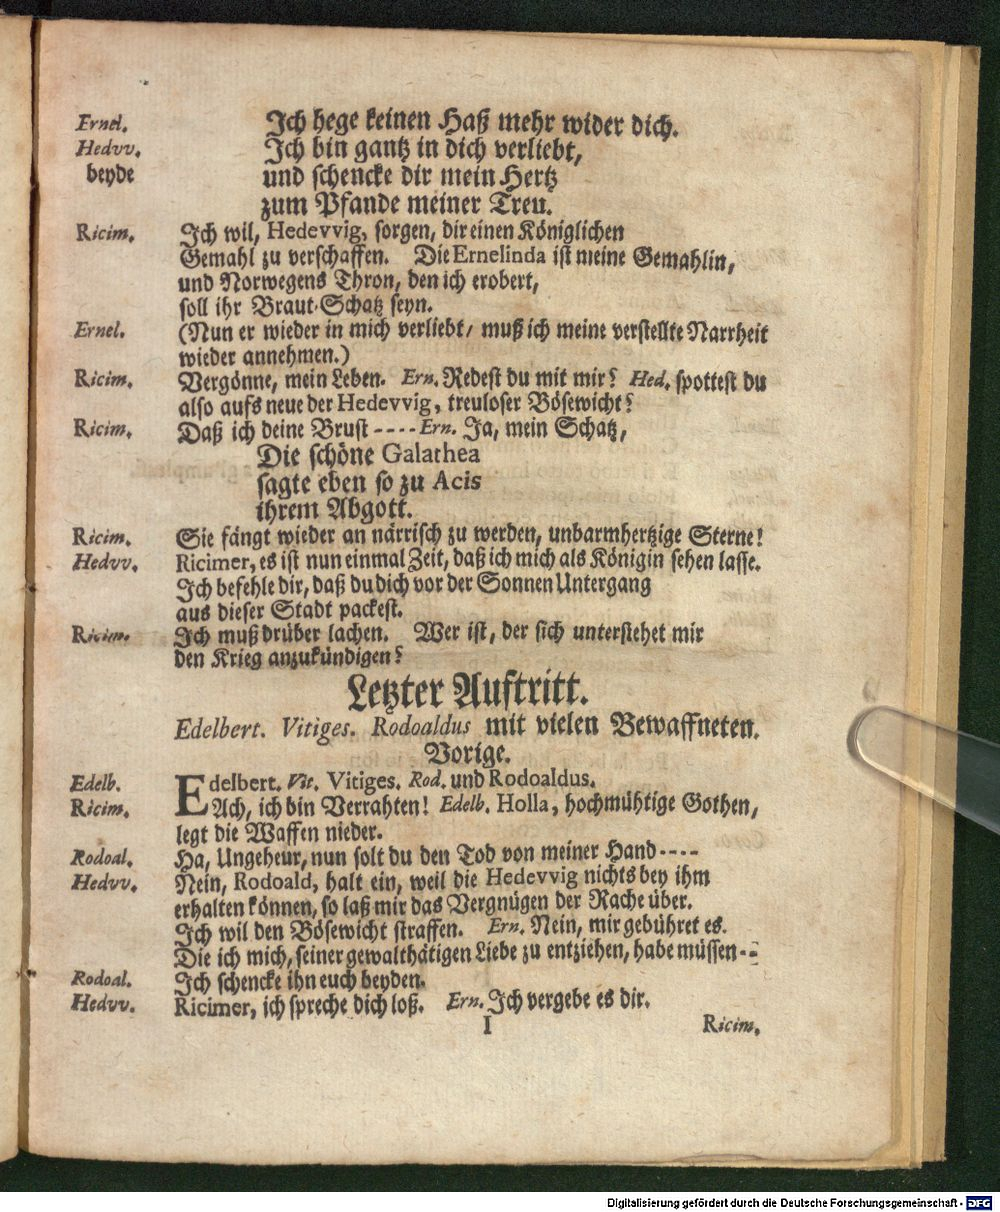 Ernel. Ich hege keinen Haß mehr wider dich.
Hedvv. Ich bin gantz in dich verliebt,
beyde und schencke dir mein Hertz
zum Pfande meiner Treu.
Ricim. Ich wil, Hedevvig, sorgen, dir einen Königlichen
Gemahl zu verschaffen. Die Ernelinda ist meine Gemahlin,
und Norwegens Thron, den ich erobert,
soll ihr Braut-Schatz seyn.
Ernel. (Nun er wieder in mich verliebt/ muß ich meine verstellte Narrheit
wieder annehmen.)
Ricim. Vergönne, mein Leben. Ern. Redest du mit mir? Hed. spottest du
also aufs neue der Hedevvig, treuloser Bösewicht?
Ricim. Daß ich deine Brust ---- Ern. Ja, mein Schatz,
Die schöne Galathea
sagte eben so zu Acis
ihrem Abgott.
Ricim. Sie fängt wieder an närrisch zu werden, unbarmhertzige Sterne!
Hedvv. Ricimer, es ist nun einmal Zeit, daß ich mich als Königin sehen lasse.
Ich befehle dir, daß du dich vor der Sonnen Untergang
aus dieser Stadt packest.
Ricim. Ich muß drüber lachen. Wer ist, der sich unterstehet mir
den Krieg anzukündigen?
Letzter Auftritt.
Edelbert. Vitiges. Rodoaldus mit vielen Bewaffneten.
Vorige.
Edelb. Edelbert. Vit. Vitiges. Rod. und Rodoaldus.
Ricim. Ach, ich bin Verrahten! Edelb. Holla, hochmühtige Gothen,
legt die Waffen nieder.
Rodoal. Ha, Ungeheur, nun solt du den Tod von meiner Hand ----
Hedvv. Nein, Rodoald, halt ein, weil die Hedevvig nichts bey ihm
erhalten können, so laß mir das Vergnügen der Rache über.
Ich wil den Bösewicht straffen. Ern. Nein, mir gebühret es.
Die ich mich, seiner gewalthätigen Liebe zu entziehen, habe müssen --
Rodoal. Ich schencke ihn euch beyden.
Hedvv. Ricimer, ich spreche dich loß. Ern. Ich vergebe es dir.
I Ricim.
Digitalisierung gefördert durch die Deutsche Forschungsgemeinschaft - DFG